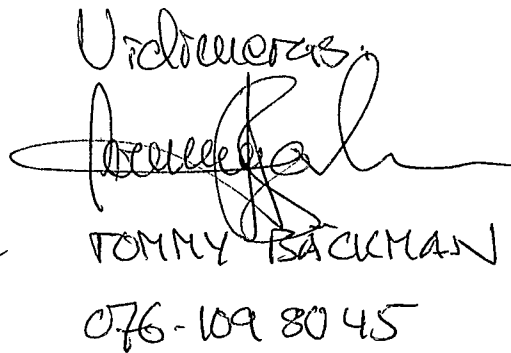 Vidimeras.
TOMMY BÄCKMAN
076-109 80 45